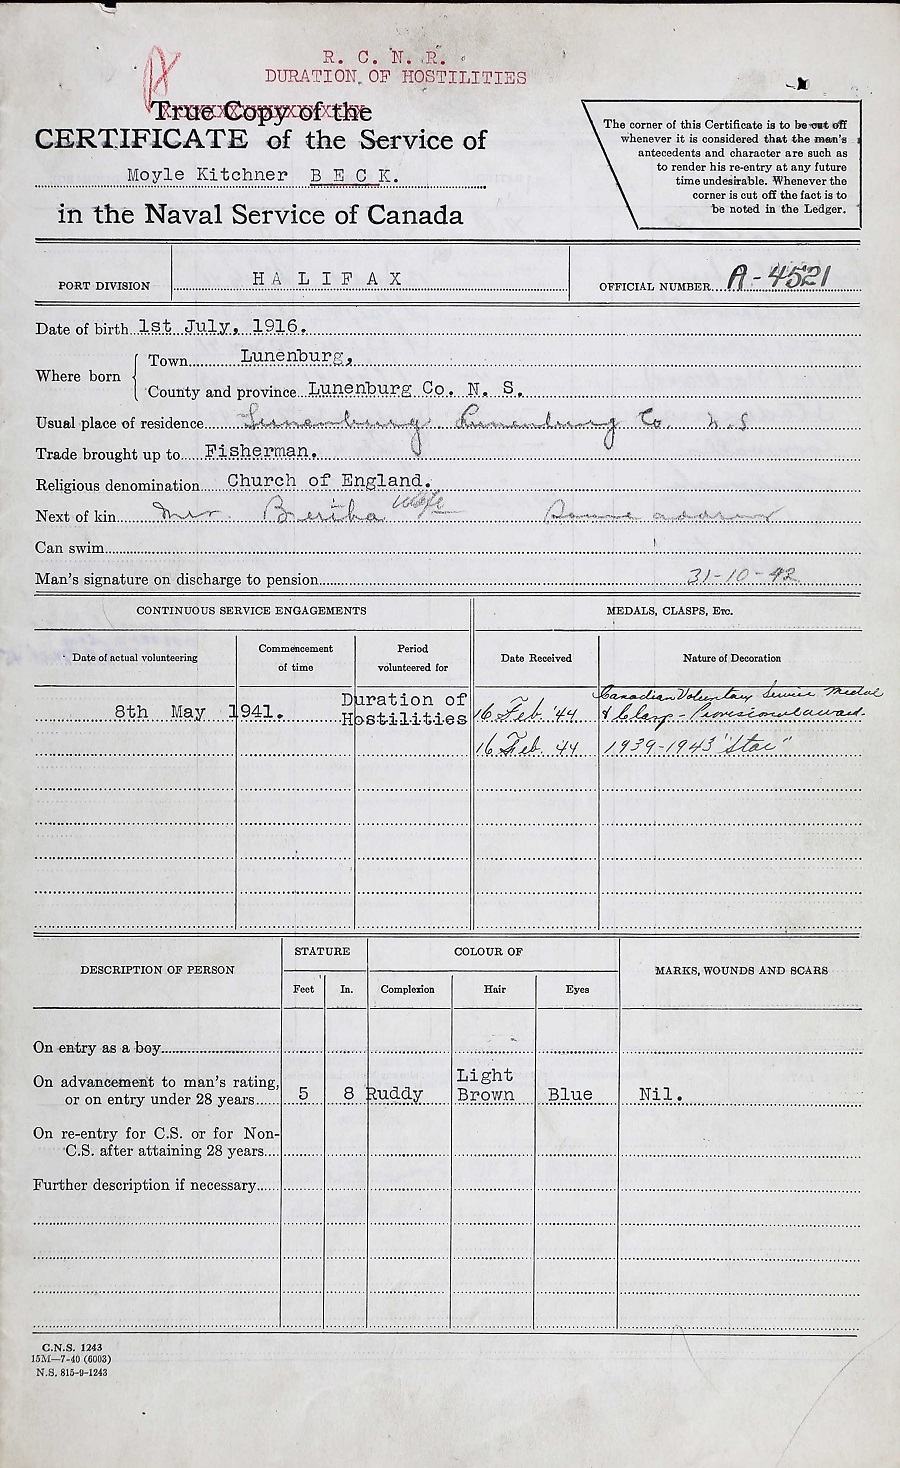 R. C. N. R.
DURATION OF HOSTILITIES
True Copy of the
CERTIFICATE of the Service of
Moyle Kitchner B E C K.
in the Naval Service of Canada
The corner of this Certificate is to be cut off
whenever it is considered that the man's
antecedents and character are such as
to render his re-entry at any future
time undesirable. Whenever the
corner is cut off the fact is to
be noted in the Ledger.
PORT DIVISION H A L I F A X OFFICIAL NUMBER A-4521
Date of birth 1st July, 1916.
Where born
Town Lunenburg,
County and province Lunenburg Co. N. S.
Usual place of residence Lunenburg Lunenburg Co. N.S
Trade brought up to Fisherman.
Religious denomination Church of England.
Next of kin Mrs. Bertha wife Same address
Can swim
Man's signature on discharge to pension 31-10-42
CONTINUOUS SERVICE ENGAGEMENTS MEDALS, CLASPS, Etc.
Date of actual volunteering Commencement of time Period volunteered for Date Received Nature of Decoration
8th May 1941. Duration of Hostilities 16 Feb. '44 Canadian Voluntary Service Medal
& Clasp - Provisional award.
16 Feb. 44 1939-1943 "Star"
DESCRIPTION OF PERSON STATURE COLOUR OF MARKS, WOUNDS AND SCARS
Feet In. Complexion Hair Eyes
On entry as a boy
On advancement to man's rating,
or on entry under 28 years 5 8 Ruddy Light Brown Blue Nil.
On re-entry for C.S. or for Non-
C.S. after attaining 28 years
Further description if necessary
C.N.S. 1243
15M—7-40 (6003)
N.S. 815-9-1243